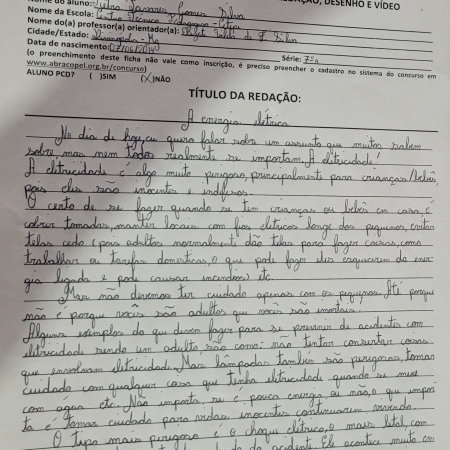 REDAÇÃO, DESENHO E VÍDEO
Nome do aluno: Tavares Gomes Silva
Nome da Escola: Centro Técnico Pedagógico - Cetepi
Nome do(a) professor(a) orientador(a): de F. Silva
Cidade/Estado:
Data de nascimento: 07/06/2014 Série: 7º a
(o preenchimento desta ficha não vale como inscrição, é preciso preencher o cadastro no sistema do concurso em
www.abracopel.org.br/concurso)
ALUNO PCD? ( )SIM (X)NÃO
TÍTULO DA REDAÇÃO:
A energia elétrica
No dia de hoje, eu quero falar sobre um assunto que muitos sabem
sobre, mas nem todos realmente se importam. A eletricidade!
A eletricidade é algo muito perigoso, principalmente para crianças/bebês,
pois eles são inocentes e indefesos.
O certo de se fazer quando se tem crianças ou bebês em casa, é
cobrir tomadas, manter locais com fios elétricos longe dos pequenos, evitar
telas cedo (pois adultos normalmente dão telas para fazer coisas, como
trabalhar ou tarefas domésticas, o que pode fazer eles esquecerem da ener-
gia ligada e pode causar incêndios) etc.
Mas não devemos ter cuidado apenas com os pequenos. Até porque
não é porque vocês são adultos que vocês são imortais.
Alguns exemplos do que devem fazer para se prevenir de acidentes com
eletricidade sendo um adulto, são como: não tentar consertar coisas
que envolvam eletricidade. Mas lâmpadas também são perigosas, tomar
cuidado com qualquer coisa que tenha eletricidade quando se mexe
com água etc. Não importa se é pouca energia, ou não, o que impor-
ta é tomar cuidado para vidas inocentes continuarem vivendo.
O tipo mais perigoso é o choque elétrico, o mais letal, com
do acidente. Ele acontece muito em